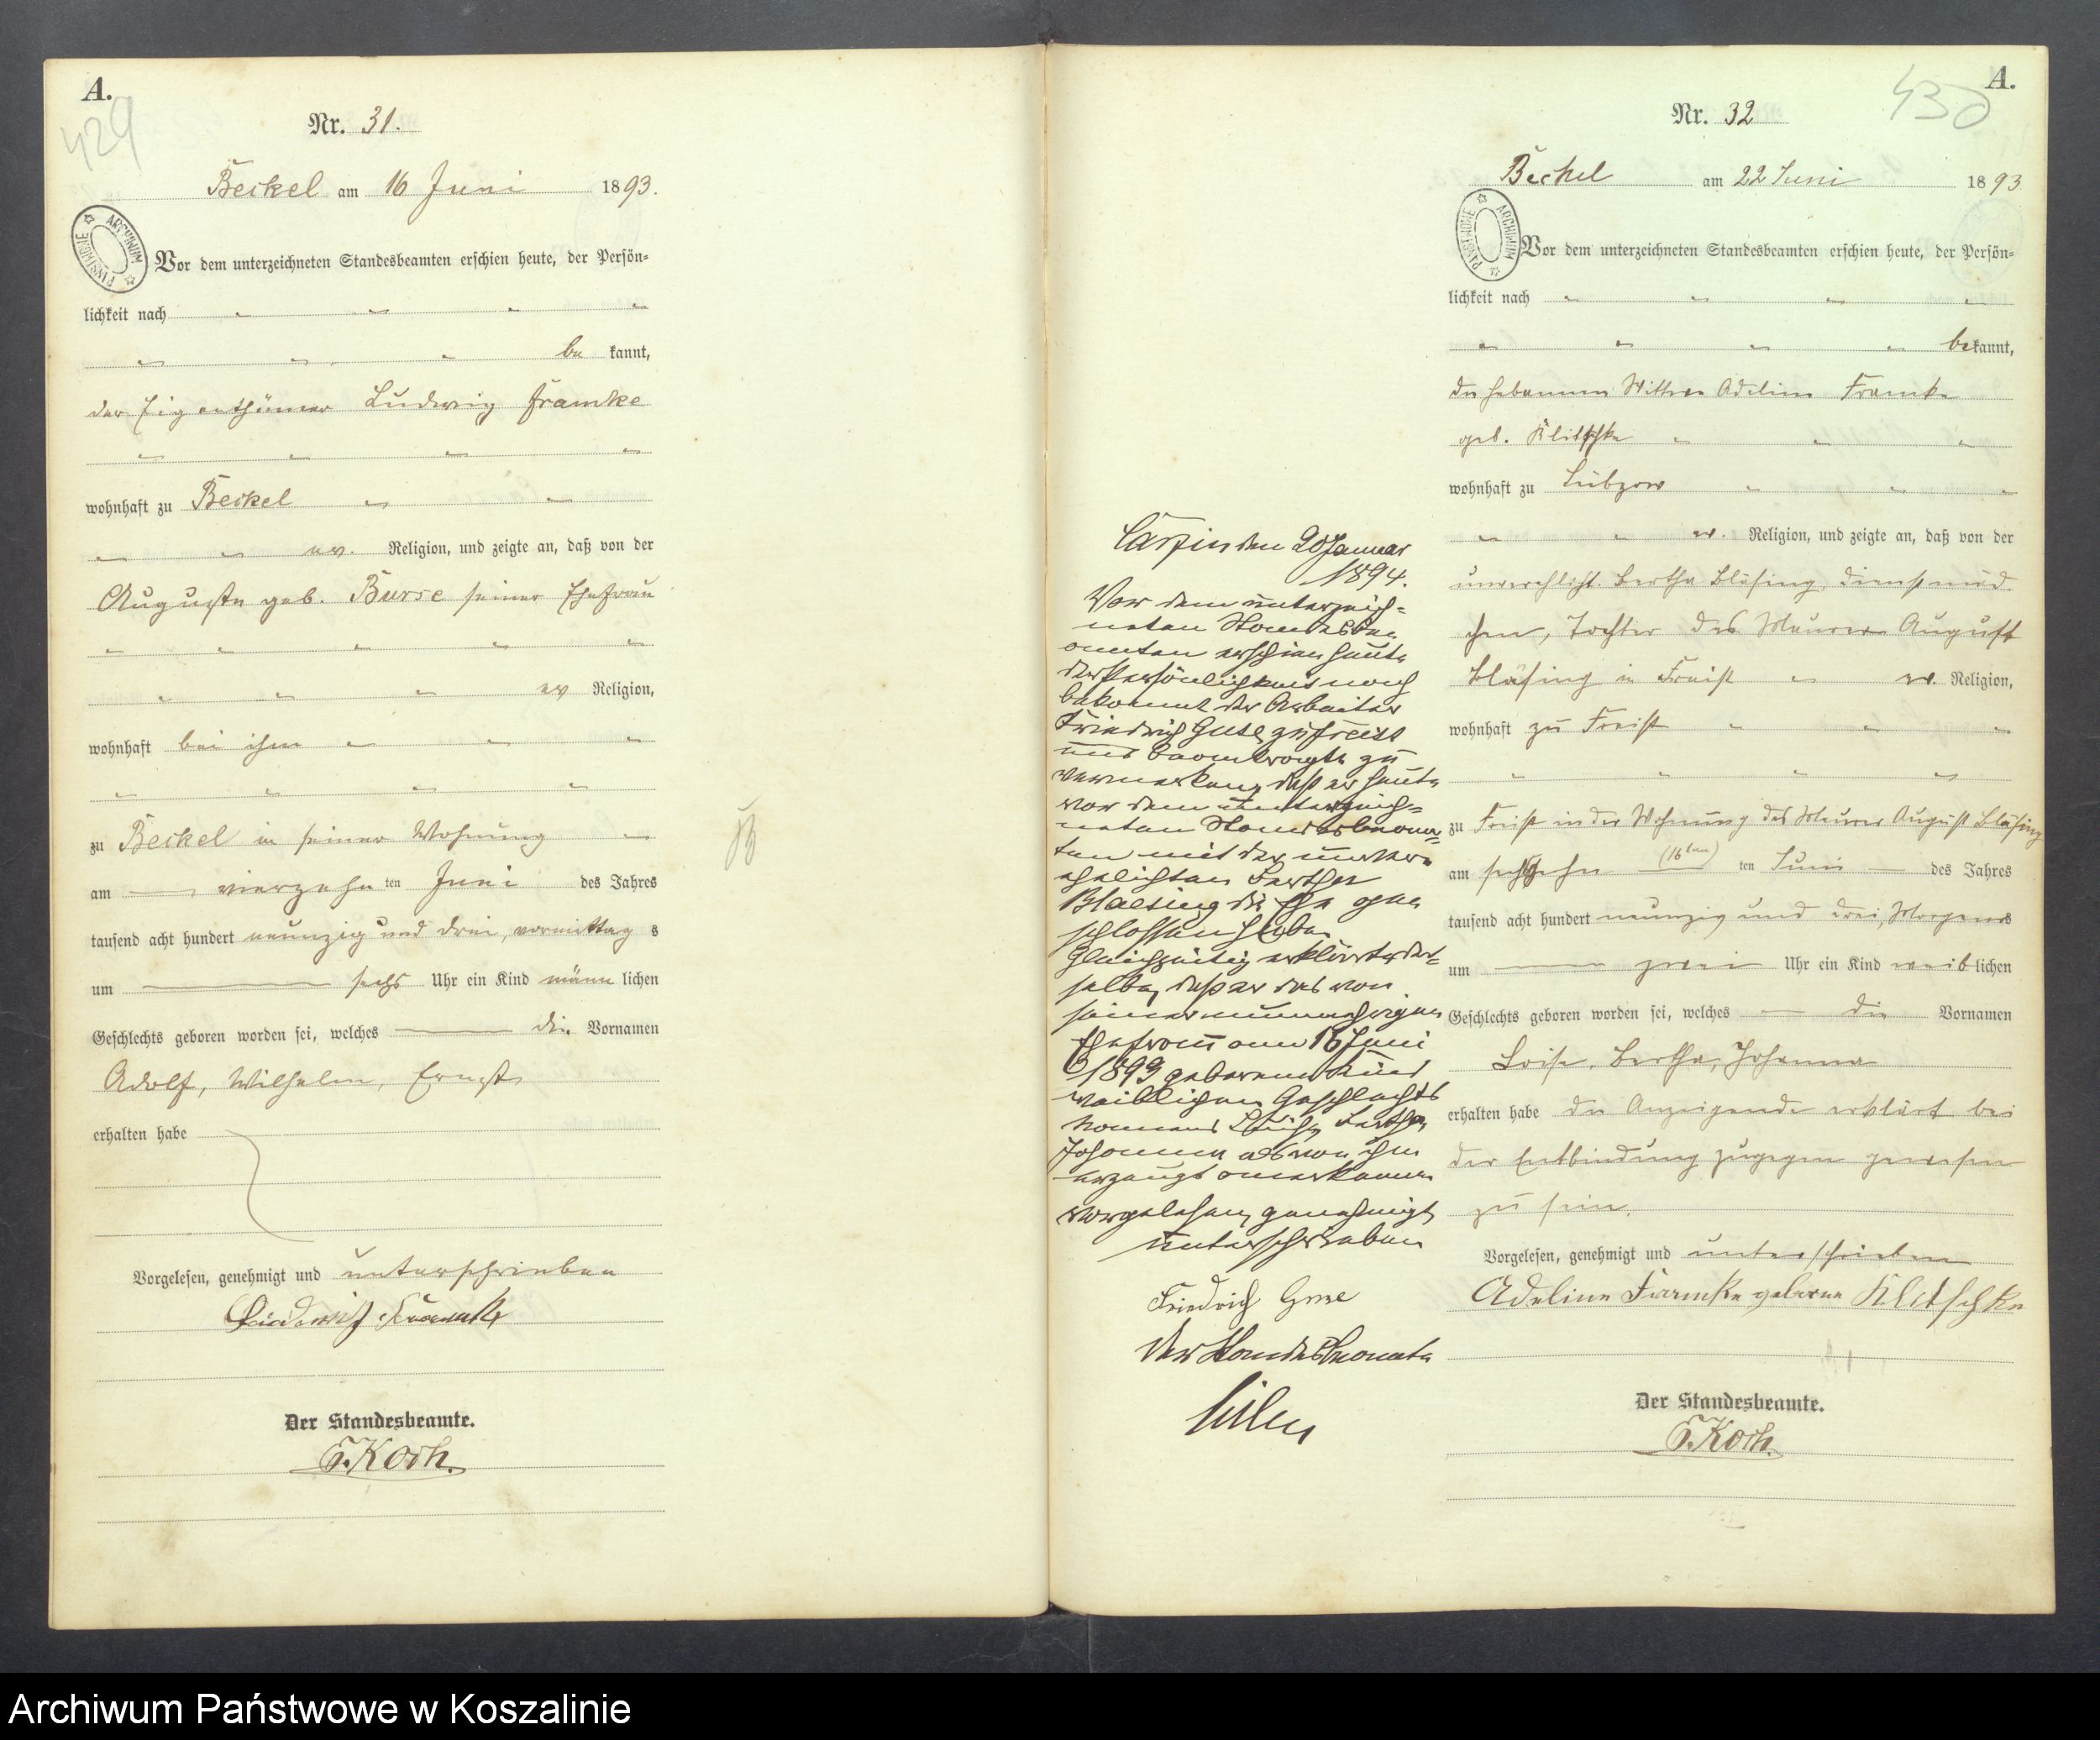 A.
429
Nr. 31.
Beckel am 16 Juni 1893.
Vor dem unterzeichneten Standesbeamten erschien heute, der Persön-
lichkeit nach
be kannt,
der Eigenthümer Ludwig Framke
wohnhaft zu Beckel
ev. Religion, und zeigte an, daß von der
Auguste geb. Burse seiner Ehefrau
ev Religion,
wohnhaft bei ihm
zu Beckel in seiner Wohnung
am vierzehn ten Juni des Jahres
tausend acht hundert neunzig und drei, vormittag s
um sechs Uhr ein Kind männ lichen
Geschlechts geboren worden sei, welches die Vornamen
Adolf, Wilhelm, Ernst
erhalten habe
Vorgelesen, genehmigt und unterschrieben
Ludwig Framke
Der Standesbeamte.
F. Koch.
A.
430
Nr. 32
Beckel am 22 Juni 1893
Vor dem unterzeichneten Standesbeamten erschien heute, der Persön-
lichkeit nach
bekannt,
die Hebamme Wittwe Adeline Framke
geb. Klitschke
wohnhaft zu Lübzow
ev. Religion, und zeigte an, daß von der
unverehlicht. Bertha Bläsing, Dienstmäd
chen, Tochter des Maurer August
Bläsing in Freist ev. Religion,
wohnhaft zu Freist
zu Freist in der Wohnung des Maurer August Bläsing
am sechzehn (16ten) ten Juni des Jahres
tausend acht hundert neunzig und drei, Morgens
um zwei Uhr ein Kind weib lichen
Geschlechts geboren worden sei, welches die Vornamen
Loise, Bertha, Johanna
erhalten habe die Anzeigende erklärt bei
der Entbindung zugegen gewesen
zu sein.
Vorgelesen, genehmigt und unterschrieben
Adeline Framke geborne Klitschke
Der Standesbeamte.
F. Koch.
den 20 Januar
1894.
Vor dem unterzeich-
neten Standesbe-
amten erschien heute
der Persönlichkeit nach
bekannt der Arbeiter
Friedrich Guse zu Freist
und beantragte zu
vermerken, daß er heute
vor dem unterzeich-
neten Standesbeam-
ten mit der unver-
ehelichten Bertha
Blaesing die Ehe ge-
schlossen habe.
Gleichzeitig erklärte der-
selbe, daß er das von
seiner nunmehrigen
Ehefrau am 16 Juni
1893 geborene Kind
weiblichen Geschlechts
Namens Louise, Bertha,
Johanna als von ihm
erzeugt anerkenne
vorgelesen, genehmigt
unterschrieben
Friedrich Guse
Der Standesbeamte
ARCHIWUM PAŃSTWOWE
ARCHIWUM PAŃSTWOWE
Archiwum Państwowe w Koszalinie